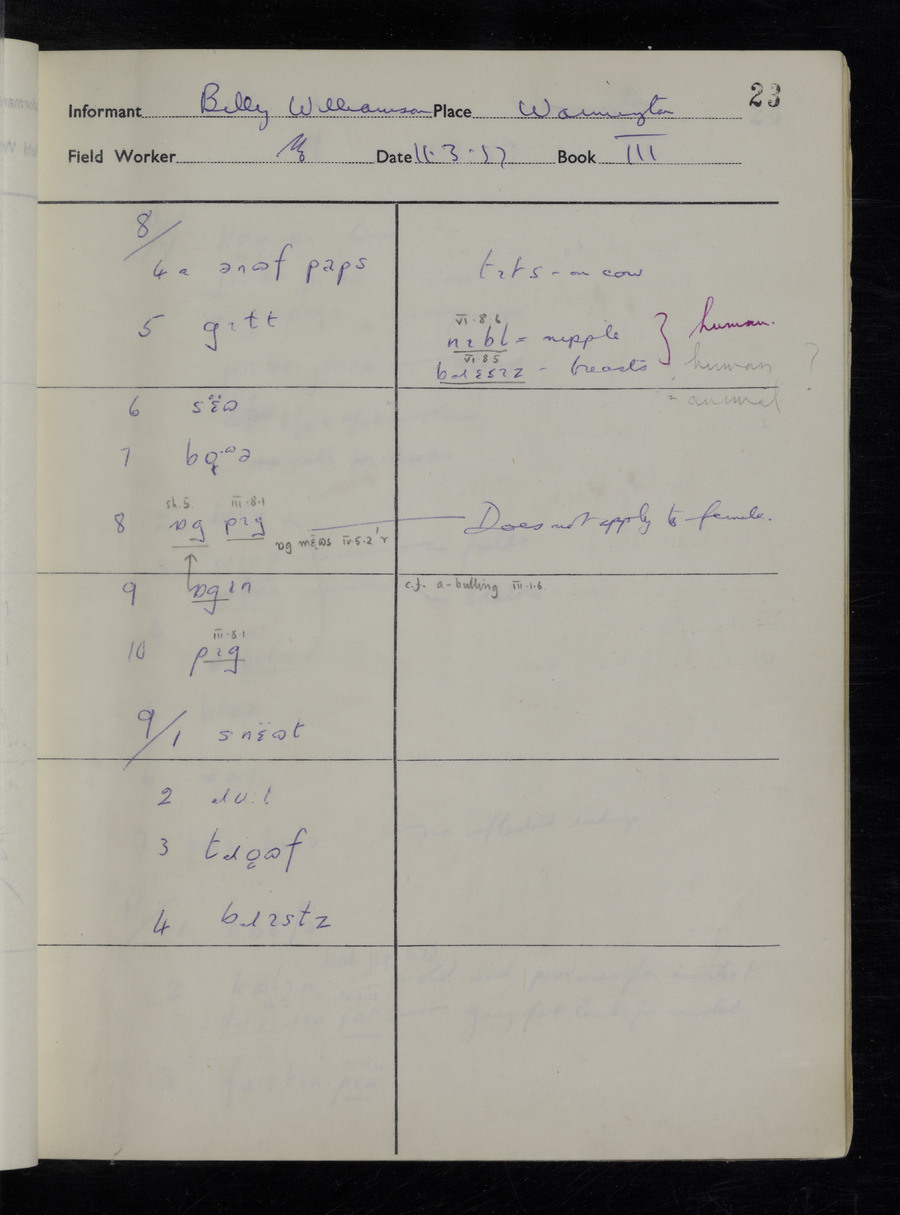 23
Informant Billy Williamson Place Warrington
Field Worker Date 11.3.57 Book III
8/
4 a ənɷf paps tɪts - on cow
5 gɪɫt
VI.8.6
nɪbl = nipple } human.
VI.8.5
bɹɛsɪz - breasts human ?
= animal
6 sɛ̈ɷ
7
sh.5. III.8.1
8 ɒg pɪg Does not apply to female.
IV.5.2
9 ɒgɪn c.f. a-bulling III.1.6.
III.8.1
10 pɪg
9/1 snɛ̈ɷt
2 ɹuːt
3 tɹɔ̜ɷf
4 bɹɪstz